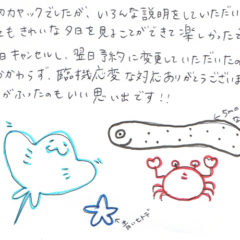 のカヤックでしたが、いろんな説明をしていただい
ともきれいな夕日を見ることができて楽しかったで
日キャンセルし、翌日予約に変更していただいたの
かかわらず、臨機応変な対応ありがとうござい
がふったのもいい思い出です!!
5mの
青いヒトデ